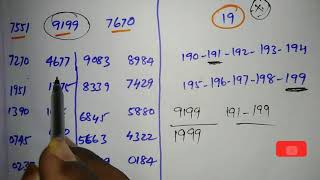 7551 9199 7670
7270 4677 9083 8984
1951 8339 7429
1390 6845 5880
0745 5663 4322
0184
19
190-191-192-193-194
195-196-197-198-199
9199 191-199
1999